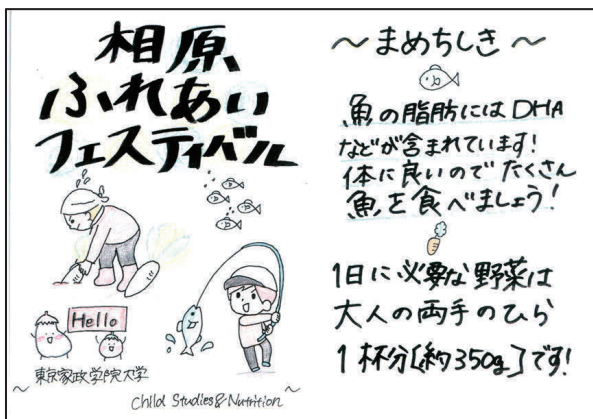 相原
ふれあい
フェスティバル
Hello
東京家政学院大学
Child Studies & Nutrition
～まめちしき～
魚の脂肪にはDHA
などが含まれています!
体に良いのでたくさん
魚を食べましょう!
1日に必要な野菜は
大人の両手のひら
1杯分[約350g]です!